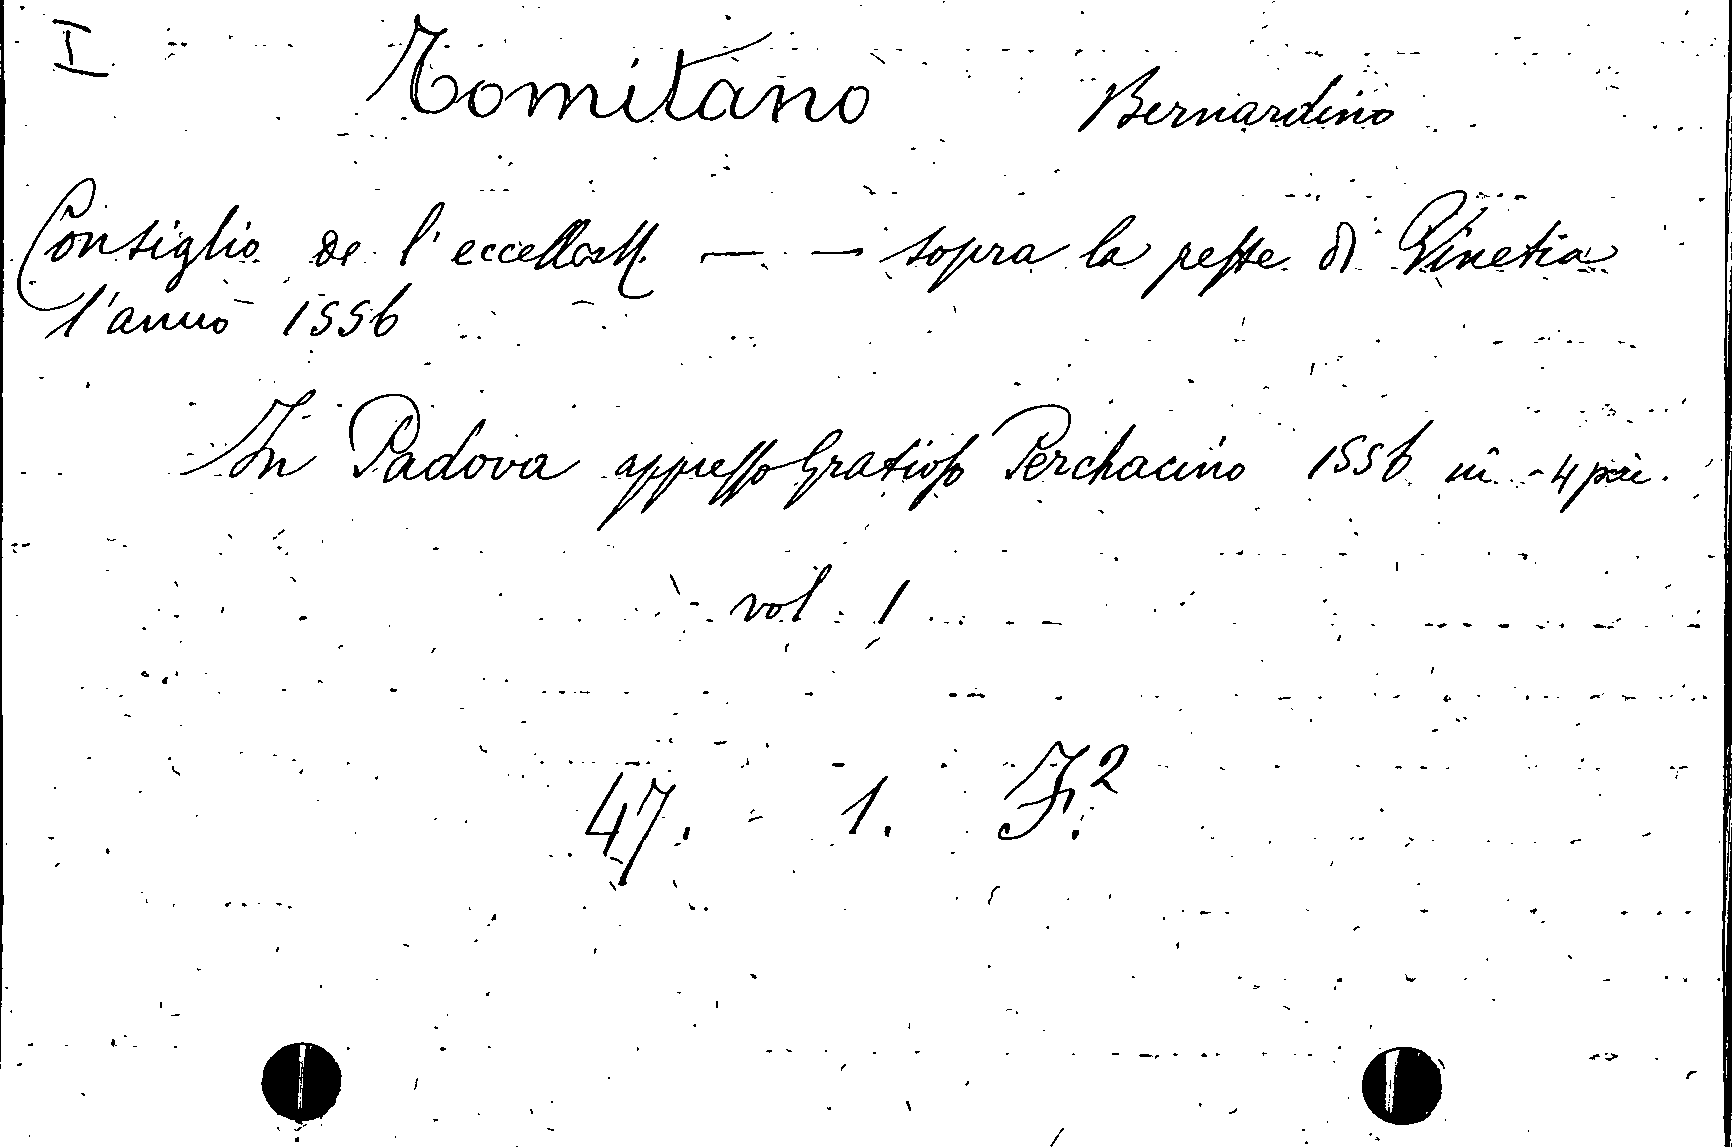 I
Tomitano Bernardino
Consiglio de l'eccellentt. — — sopra la peste di Vinetia
l'anno 1556
In Padova appresso Gratioso Perchacino 1556 in -4 pic.
vol. 1
47. - 1. F.²